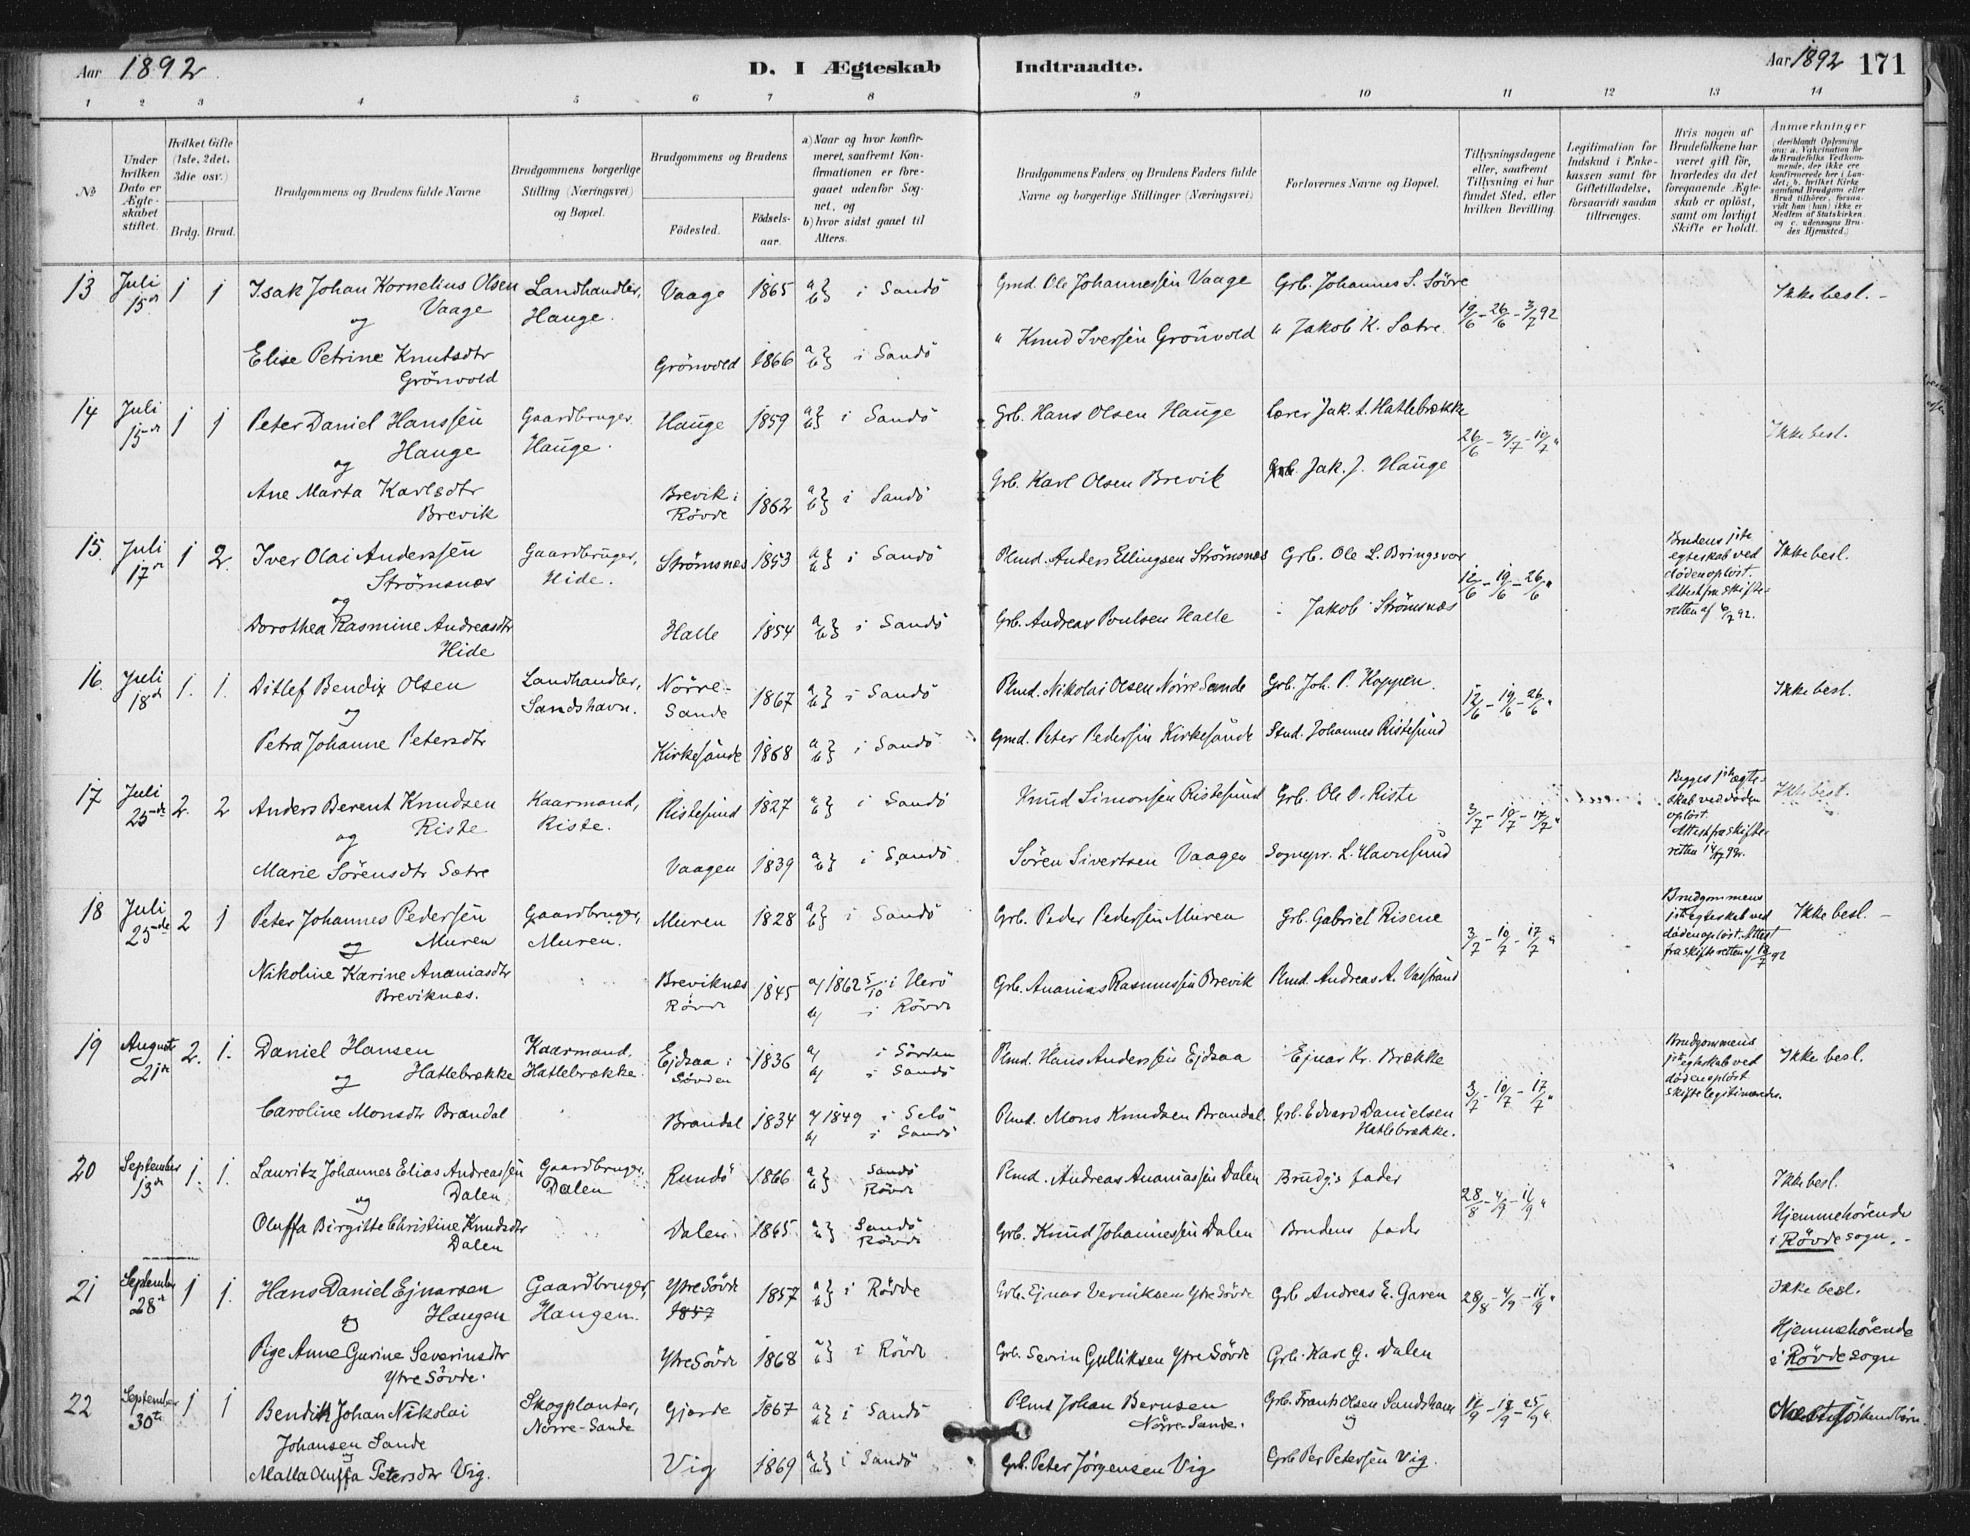 Aar 1892
D. I Ægteskab Indtraadte.
Aar 1892 171
1 2 3 4 5 6 7 8 9 10 11 12 13 14
No
Under hvilken Dato er Ægteskabet stiftet.
Hvilket Gifte (1ste, 2det, 3die osv.)
Brdg. Brud.
Brudgommens og Brudens fulde Navne
Brudgommens borgerlige Stilling (Næringsvei) og Bopæl.
Brudgommens og Brudens
Fødested. Fødselsaar.
a) Naar og hvor konfirmeret, saafremt Konfirmationen er foregaaet udenfor Sognet, og
b) hvor sidst gaaet til Alters.
Brudgommens Faders og Brudens Faders fulde Navne og borgerlige Stillinger (Næringsvei)
Forlovernes Navne og Bopæl.
Tillysningsdagene eller, saafremt Tillysning ei har fundet Sted, efter hvilken Bevilling.
Legitimation for Indskud i Enkekassen samt for Giftetilladelse, forsaavidt saadan tiltrænges.
Hvis nogen af Brudefolkene har været gift før, hvorledes da det foregaaende Ægteskab er opløst, samt om lovligt Skifte er holdt.
Anmærkninger
(deriblandt Oplysning om: a. Vakcination for de Brudefolks Vedkommende, der ikke ere konfirmerede her i Landet; b. hvilket Kirkesamfund Brudgom eller Brud tilhører, forsaavidt han (hun) ikke er Medlem af Statskirken, og c. udensogns Brudes Hjemsted.)
13 Juli 15de 1 1 Isak Johan Kornelius Olsen Vaage Landhandler, Hauge. Vaage 1865 a b} i Sandö Gmd. Ole Johannessen Vaage Grb. Johannes S. Sövre 19/6 - 26/6 - 3/7 92 Ikke besl. -
og
Elise Petrine Knutsdtr Grönvold Grönvold 1866 a b} i Sandö " Knud Iversen Grönvold " Jakob K. Sætre
14 Juli 15de 1 1 Peter Daniel Hanssen Hauge Gaardbruger Hauge. Hauge 1859 a b} i Sandö Grb. Hans Olsen Hauge Lærer Jak. L. Hatlebrække 26/6 - 3/7 - 10/7 " Ikke besl.
og
Ane Marta Karlsdtr Brevik Brevik i Rövde 1862 a b} i Sandö Grb. Karl Olsen Brevik Grb. Jak. J. Hauge
15. Juli 17de 1 2. Iver Olai Anderssen Strømsnæs Gaardbruger, Hide. Strømsnæs 1853 a b} i Sandö Plmd. Anders Ellingsen Strømsnæs Grb. Ole L. Bringsvor 12/6 - 19/6 - 26/6 " Brudens 1ste egteskab ved döden oplöst. Attest fra skifteretten af 6/7 92. Ikke besl.
og
Dorothea Rasmine Andreasdtr Hide Halle 1854 a b} i Sandö Grb. Andreas Poulsen Halle Jakob Strømsnæs
16. Juli 18de 1. 1. Ditlef Bendix Olsen Landhandler, Sandshavn. Nörre-Sande 1867 a b} i Sandö Plmd. Nikolai Olsen Nörre Sande Grb. Joh. P. Koppen. 12/6 - 19/6 - 26/6 " Ikke besl.
og
Petra Johanne Petersdtr Kirkesande 1868 a b} i Sandö Gmd. Peter Pedersen Kirkesande Stud. Johannes Ristesund
17 Juli 25de 2. 2 Anders Berent Knudsen Riste Kaarmand, Riste. Ristesund 1827 a b} i Sandö Knud Simonsen Ristesund Grb. Ole O. Riste 3/7 - 10/7 - 17/7 " Begges 1ste ægteskab ved döden oplöst. Attest fra skifteretten 14/7 92. Ikke besl.
og
Marie Sörensdtr Sætre Vaagen 1839 a b} i Sandö Sören Sivertsen Vaagen Sognepr. L. Havnsund
18 Juli 25de 2 1 Peter Johannes Pedersen Muren Gaardbruger, Muren. Muren 1828 a b} i Sandö Grb. Peder Pedersen Muren Grb. Gabriel Risene 3/7 - 10/7 - 17/7 " Brudgommens 1ste egteskab ved döden oplöst. Attest fra skifteretten af 18/7 92 Ikke besl. -
og
Nikoline Karine Ananiasdtr Breviknæs. Breviknæs Rövde 1845 a) 1862 5/10 i Herö b) i Rövde Grb. Ananias Rasmussen Brevik Plmd. Andreas A. Vasstrand
19 August 21de 2. 1. Daniel Hansen Hatlebrække Kaarmand, Hatlebrække. Ejdsaa i Sövden 1836 a) i Sövden b) i Sandö Plmd. Hans Anderssen Ejdsaa Ejnar Kr. Brække 3/7 - 10/7 - 17/7 " Brudgommens 1ste egteskab ved döden oplöst skifte legitimeredes. Ikke besl.
og
Caroline Monsdtr Brandal Brandal 1834 a) 1849 i Selö b) i Sandö Plmd. Mons Knudsen Brandal. Grb. Edvard Danielsen Hatlebrække.
20 September 13de 1. 1. Lauritz Johannes Elias Andreassen Dalen Gaardbruger, Dalen Rundö 1866 a b} Sandö Rövde Plmd. Andreas Ananiassen Dalen Brudg's fader 28/8 - 4/9 - 11/9 " Ikke besl.
og
Oluffa Birgitte Christine Knudsdtr Dalen Dalen 1865 a b} Sandö Rövde Grb. Knud Johannessen Dalen Brudens fader Hjemmehörende i Rövde sogn. -
21 September 28de 1 1. Hans Daniel Ejnarsen Haugen Gaardbruger, Haugen. Ytre Sövde 1857 1857 a b} i Rövde Grb. Ejnar Verniksen Ytre Sövde Grb Andreas E. Garen 28/8 - 4/9 - 11/9 " Ikke besl.
og
Pige Anne Gurine Severinsdtr Ytre Sövde. Ytre Sövde 1868 a b} i Rövde Grb. Sevrin Gulliksen Ytre Sövde Grb. Karl G. Dalen Hjemmehörende i Rövde sogn
22 September 30te 1 1 Bendik Johan Nikolai Johansen Sande Skogplanter, Nörre-Sande Gjerde 1867 a b} i Sandö Plmd Johan Bernsen Nörre-Sande. Grb. Frants Olsen Sandshavn 11/9 - 18/9 - 25/9 "
og
Malla Oluffa Petersdtr Vig. Vig 1869 a b} i Sandö Grb. Peter Jörgensen Vig Grb Per Petersen Vig.